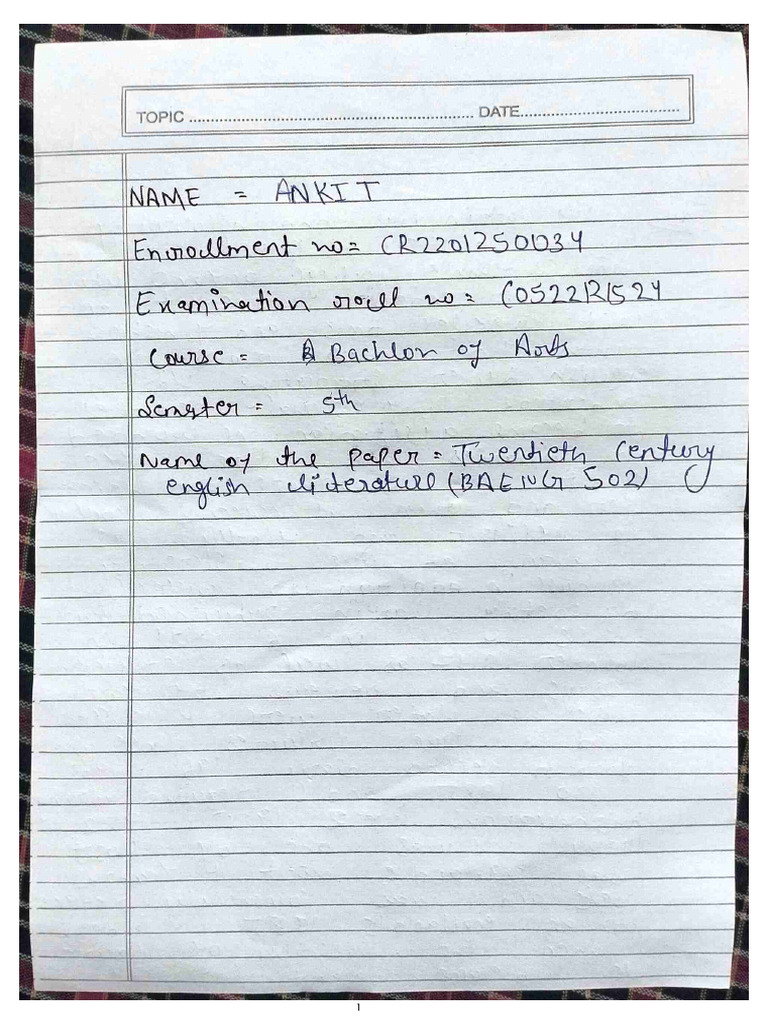 TOPIC ........................ DATE........................
NAME = ANKIT
Enrollment no= CR2201250034
Examination roll no= C0522R1524
Course = Bachlor of Arts
Semster = 5th
Name of the paper = Twentieth Century
english literature (BAENG 502)
1